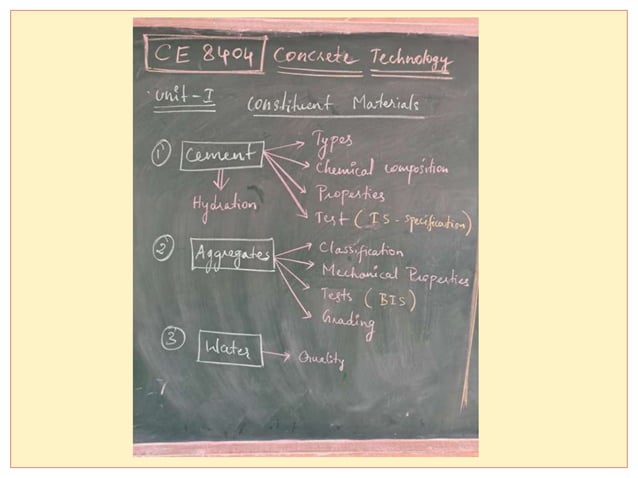 CE 8404 Concrete Technology
Unit-I Constituent Materials
1 Cement
Types
Chemical composition
Properties
Test (IS-specification)
Hydration
2 Aggregates
Classification
Mechanical Properties
Tests (BIS)
Grading
3 Water
Quality